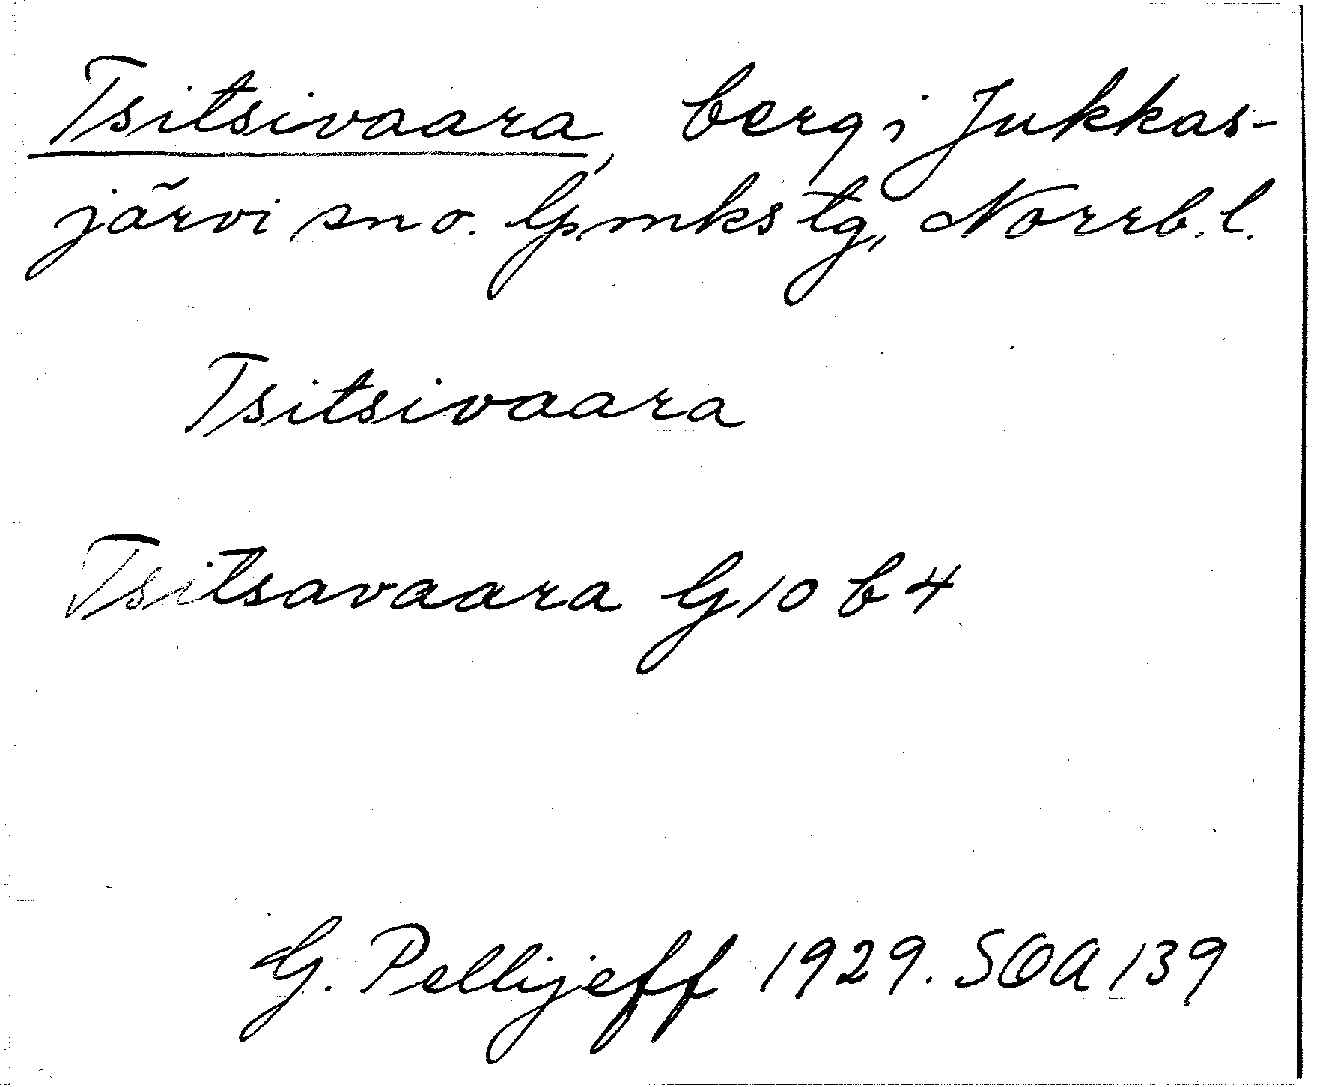 Tsitsivaara, berg i Jukkas-
järvi sn o. lpmkstg, Norrb. l.
Tsitsivaara
Tsitsavaara G 10 b 4
G. Pellijeff 1929. SOA 139